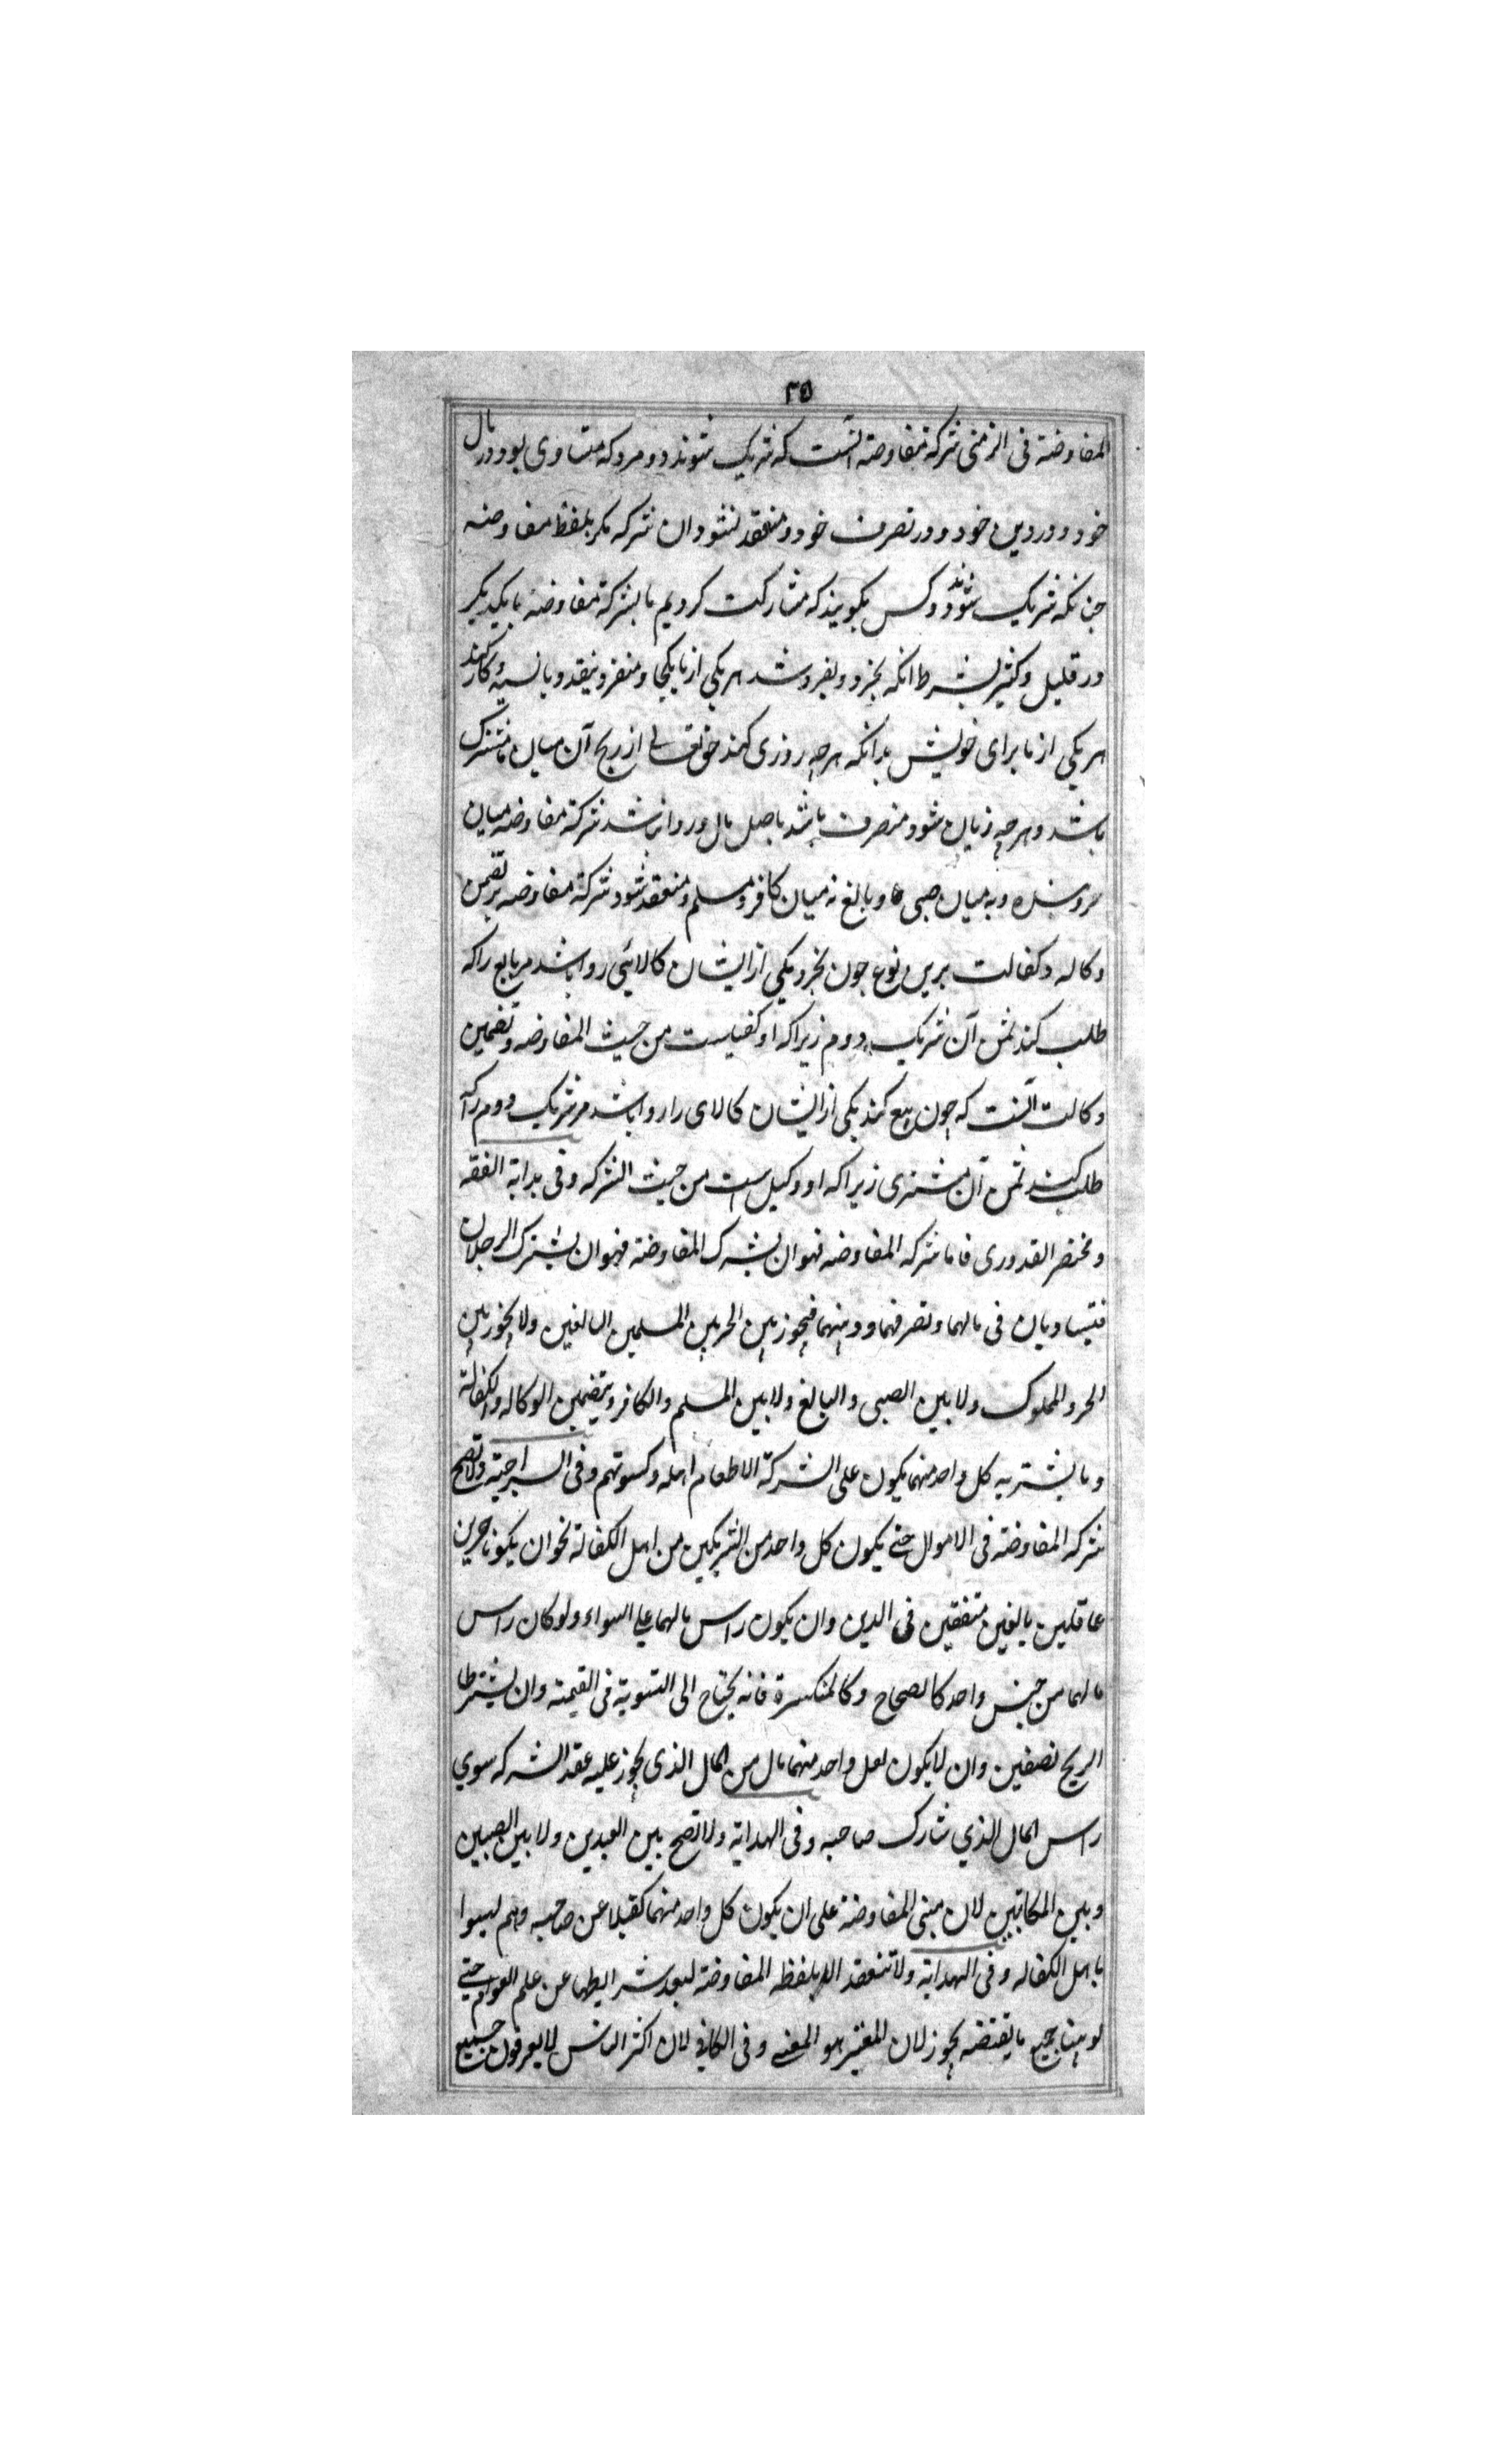 ٣٥
المفاوضة فى الزمنى شركة مفاوضة آنست كه شريك شوند دو مرد كه متساوى بود در مال
خود و در دين خود و در تصرف خود و منعقد نشود ان شركه مكر بلفظ مفاوضه
چنانكه شريك شوند دو كس بكويند كه مشاركت كرديم ما بشركة مفاوضه بايكديكر
در قليل و كثير بشرط انكه بخرد و بفروشد هر يكى از ما يكجا و منفرد بنقد و بانسيه و كار كند
هر يكى از ما براى خويش بدانكه هر چه روزى كند حق تعالى از ربح آن ميان ما مشترك
باشد و هر چه زيان شود منصرف باشد باصل مال و روا نباشد شركة مفاوضه ميان
حر و بنده و نه ميان صبى و بالغ نه ميان كافر و مسلم و منعقد شود شركة مفاوضه بر تضمن
وكاله و كفالت برين نوع چون بخرد يكى از ايشان كالائى روا باشد مر بايع را كه
طلب كند ثمن آن شريك دوم زيراكه او كفيلست من حيث المفاوضه و تضمين
وكالت آنست كه چون بيع كند يكى از ايشان كالاى را روا باشد مر شريك دوم را كه
طلب كند ثمن آن مشترى زيراكه او وكيل است من حيث الشركه و فى بداية الفقه
و مختصر القدورى فاما شركه المفاوضه فهو ان بشرك المفاوضة فهو ان يشترك الرجلان
فتيساويان فى مالهما و تصرفهما و دينهما فيجوز بين الحرين المسلمين البالغين ولا يجوز بين
الحر و المملوك ولا بين الصبى و البالغ ولا بين المسلم و الكافر و يتضمين الوكاله و الكفالة
و ما يشتريه كل واحد منهما يكون على الشركة الا طعام اهله و كسوتهم و فى السراجية ولا تصح
شركه المفاوضة فى الاموال حتى يكون كل واحد من الشريكين من اهل الكفالة نحو ان يكونا حرين
عاقلين بالغين متفقين فى الدين وان يكون راس مالهما على السواء ولو كان راس
مالهما من جنس واحد كالصحاح و كالمنكسرة فانه يحتاج الى التسوية فى القيمة وان يشترطا
الربح نصفين وان لا يكون لعل واحد منهما مال من المال الذى يجوز عليه عقد الشركه سوي
راس المال الذي شارك صاحبه و فى الهداية ولا تصح بين العبدين ولا بين الصبيين
و بين المكاتبين لان مبنى المفاوضة على ان يكون كل واحد منهما كفيلا عن صاحبه و هم ليسوا
باهل الكفاله و فى الهداية ولا تنعقد الا بلفظه المفاوضة لبعد شرايطها عن علم العوام حتى
لو بينا جميع ما يقتضه يجوز لان المعتبر هو المعنى و فى الكافى لان اكثر الناس لا يعرفون جميع